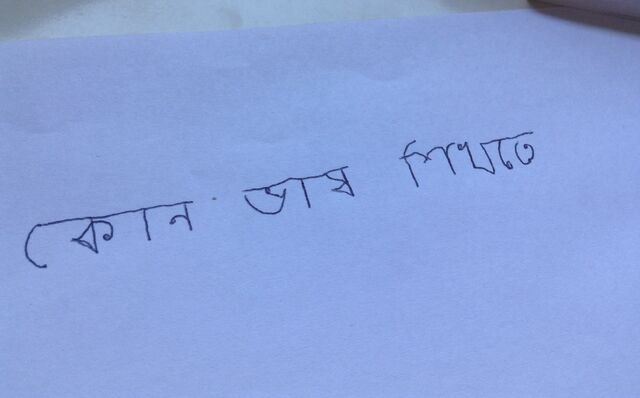 কোন ভাষ শিখতে